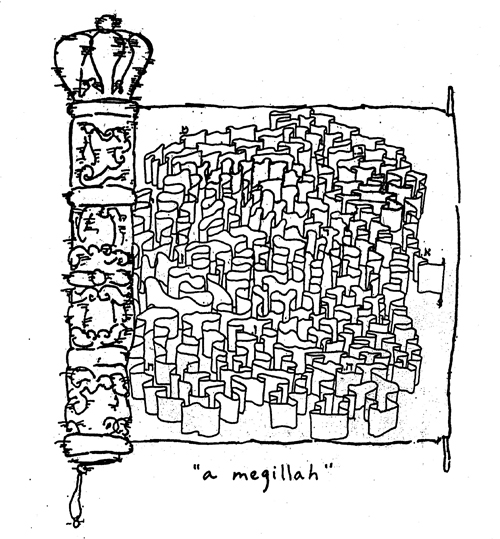 "a megillah"